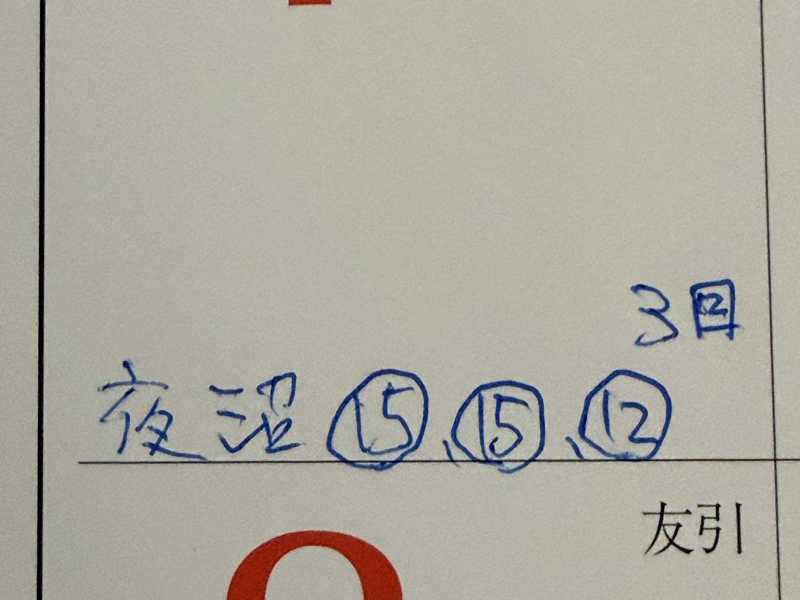 3回
夜沼⑮、⑮、⑫
友引